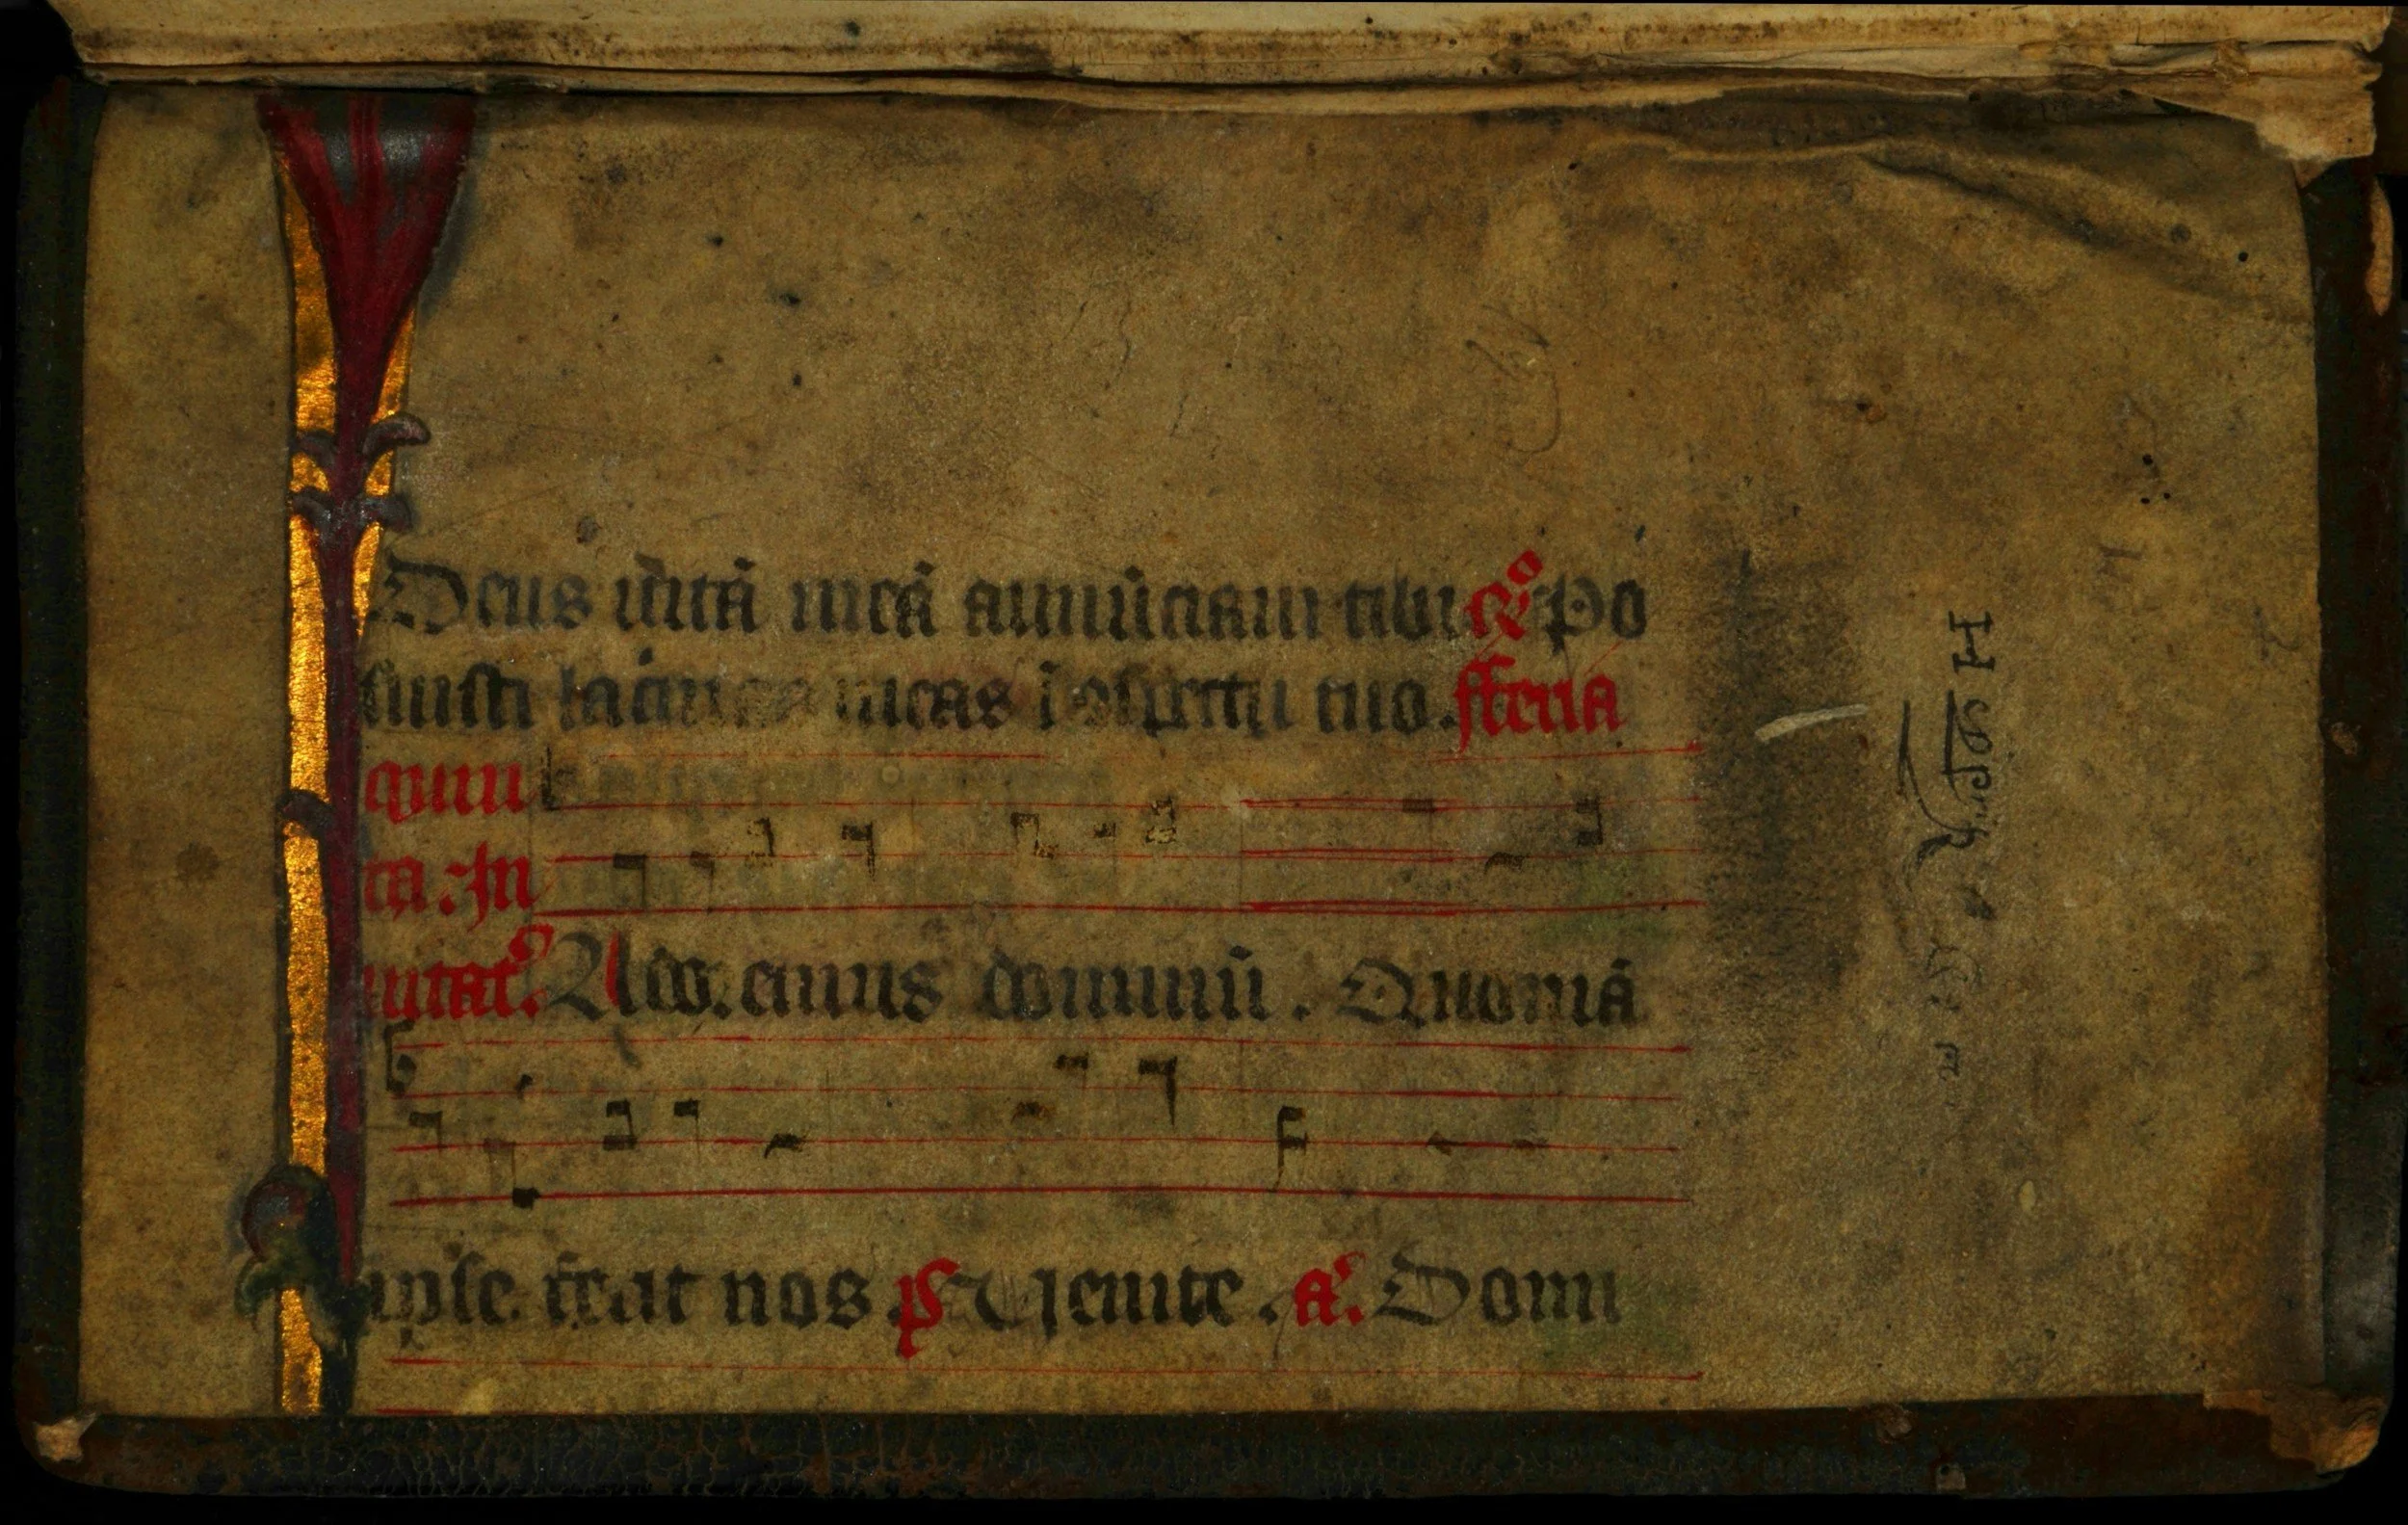 Deus uitā meā annūciaui tibi Rº Po
suisti lacrimas meas ī ɔspectu tuo. fferia
quin
ta. In
uitat'. Ado. cinus dominū. Quoniā
ipse fecit nos ps Uenite. a'. Domi